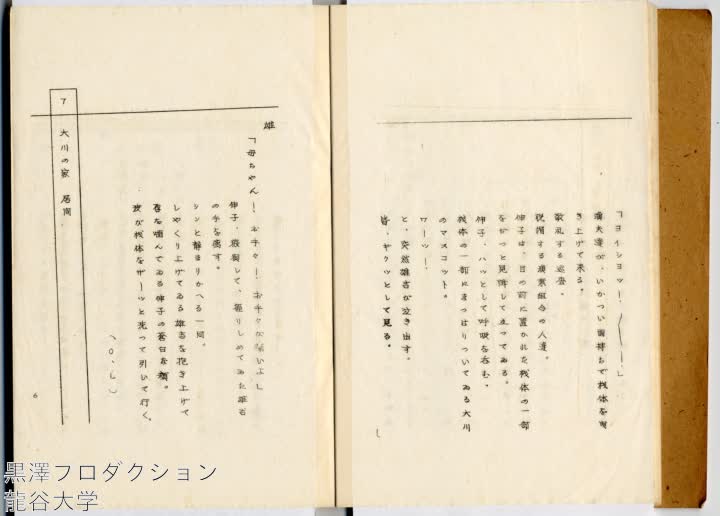 「ヨイショッー！〱ー！」
漁夫達が、いかつい面持ちで機体を曳
き上げて来る。
敬礼する巡査。
脱帽する漁業組合の人達。
伸子は、目の前に置かれた機体の一部
をかつと見降して立つてゐる。
伸子、ハッとして呼吸を呑む。
機体の一部にまつはりついてゐる大川
のマスコット。
ワーッー！
と、突然雄吉が泣き出す。
皆、ギクッとして見る。
雄
「母ちゃん！お手々！お手々が痛いよし
伸子、緊張して、握りしめてゐた雄吉
の手を離す。
シンと静まりかへる一同。
しやくり上げてゐる雄吉を抱き上げて
唇を噛んでゐる伸子の蒼白な顔。
波が機体をザーッと洗つて引いて行く。
（O・L）
7 大川の家 居間
6
黒澤プロダクション
龍谷大学